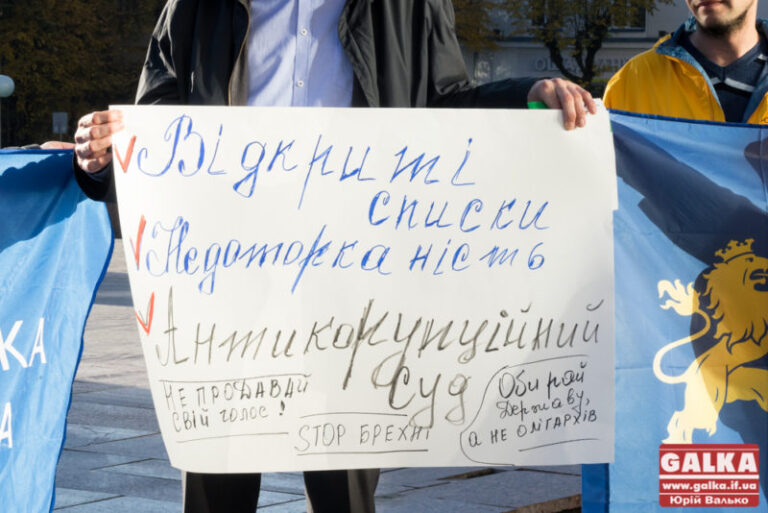 Відкриті
списки
Недоторканність
Антикорупційний
суд
НЕ ПРОДАВАЙ
СВІЙ ГОЛОС!
STOP БРЕХНІ
Обирай
Державу,
а не олігархів
КА
А
GALKA
www.galka.if.ua
Юрій Валько